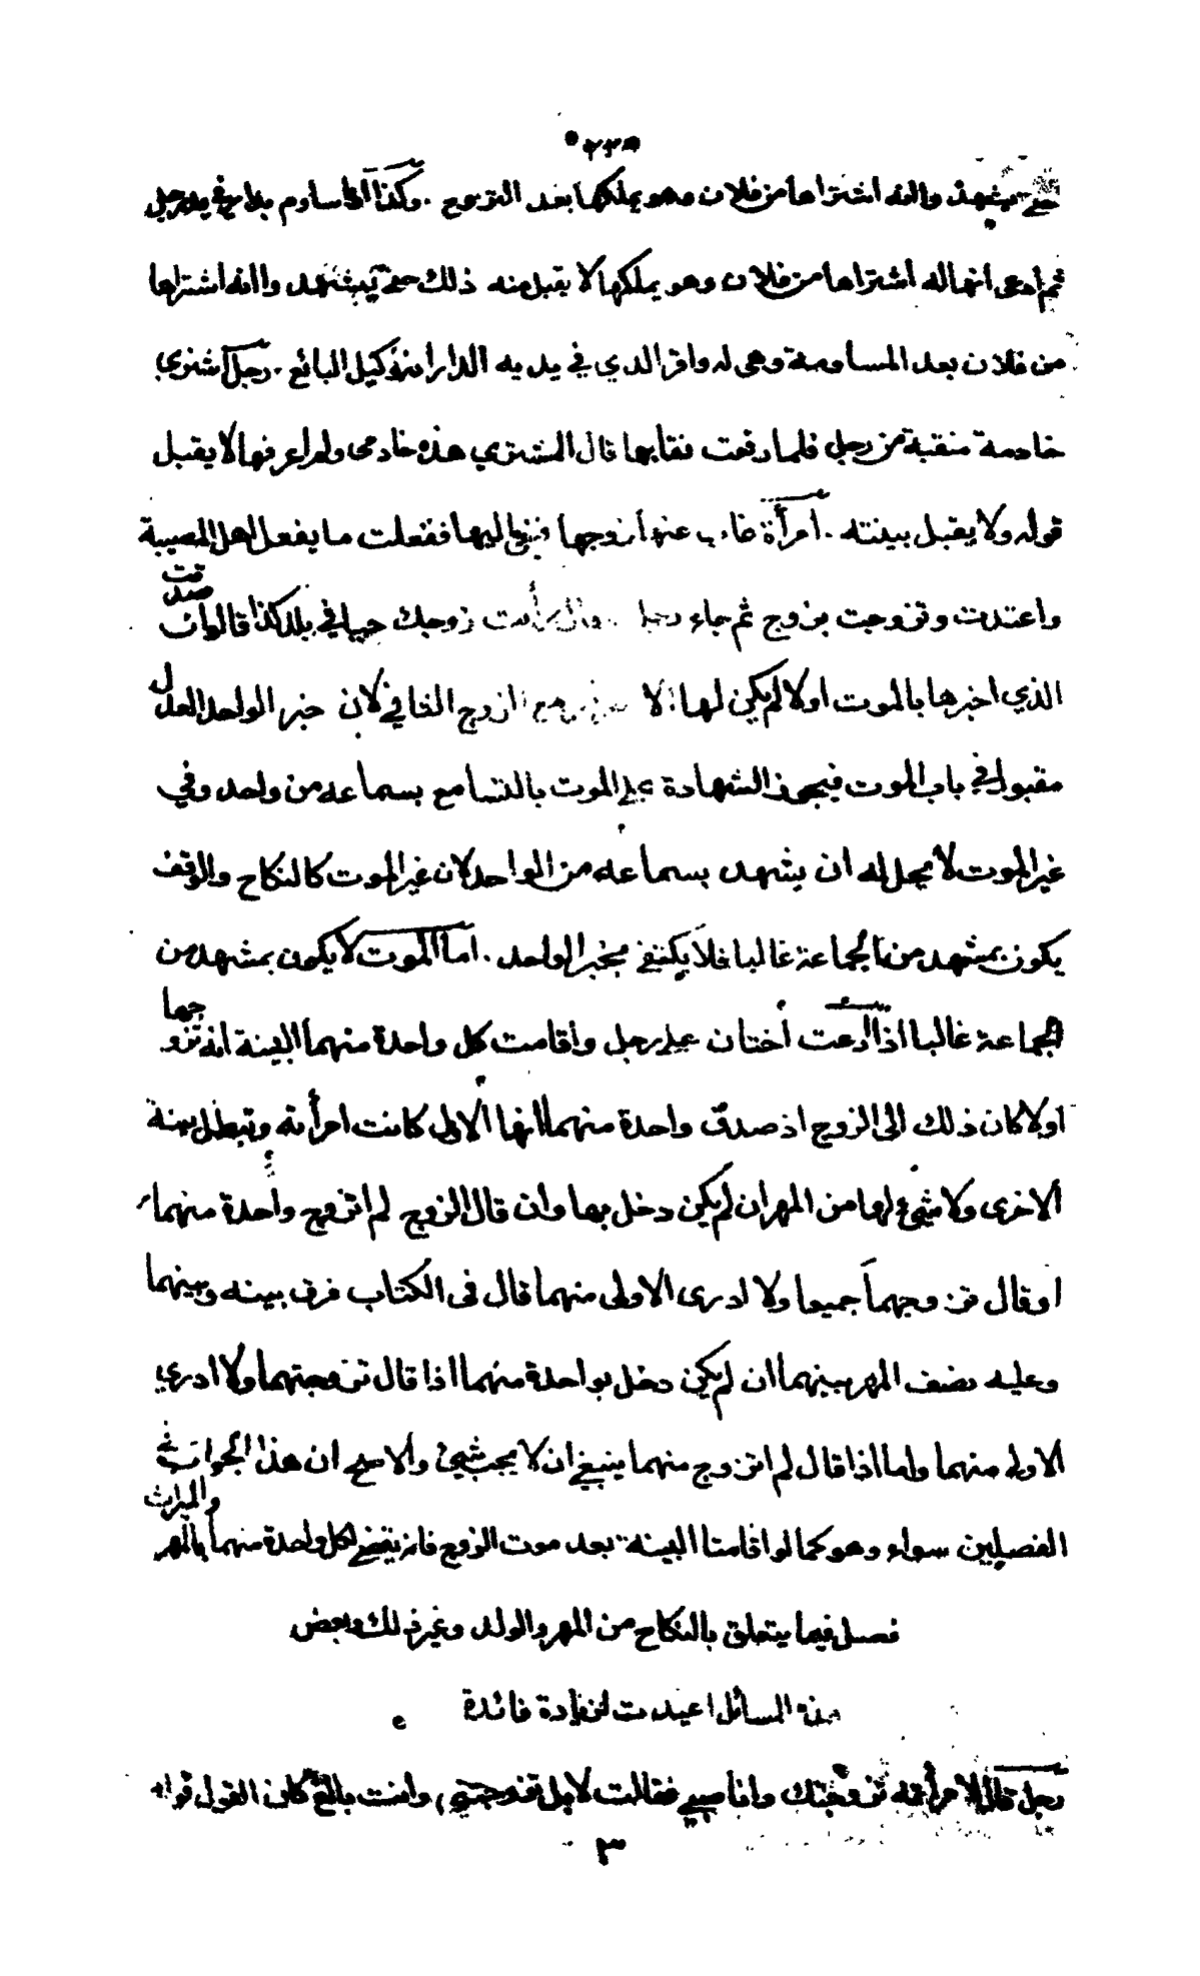 حتى يشهدوا انه اشتراها من فلان وهو يملكها بعد التزوج . وكذا اذا ساوم بدار في يد رجل
ثم ادعى انها له اشتراها من فلان وهو يملكها لا يقبل منه ذلك حتى يشهدوا انه اشتراها
من فلان بعد المساومة وهى له واقر الذي في يديه الدار انه وكيل البائع . رجل اشترى
خادمة منقبة من رجل فلما رفعت نقابها قال المشتري هذه خادمى ولم اعرفها لا يقبل
قوله ولا يقبل بينته . امرأة غاب عنها زوجها فنعي اليها ففعلت ما يفعل اهل المصيبة
واعتدت وتزوجت بزوج ثم جاء زوجك حيا في بلد كذا قالوا ان صدقت
الذي اخبرها بالموت اولا لم يكن لها الزوج الثاني لان خبر الواحد العدل
مقبول في باب الموت فيجوز الشهادة على الموت بالتسامع بسماعه من واحد وفي
غير الموت لا يحل له ان يشهد بسماعه من الواحد لان غير الموت كالنكاح والوقف
يكون بمشهد من الجماعة غالبا فلا يكتفى بخبر الواحد . اما الموت لا يكون بمشهد من
الجماعة غالبا اذا ادعت أختان على رجل واقامت كل واحدة منهما البينة انه تزوجها
اولا كان ذلك الى الزوج اذ صدق واحدة منهما انها الاولى كانت امرأته وتبطل بينة
الاخرى ولا شئ لها من المهر ان لم يكن دخل بها وان قال الزوج لم اتزوج واحدة منهما
او قال تزوجهما جميعا ولا ادرى الاولى منهما قال فى الكتاب فرق بينه وبينهما
وعليه نصف المهر بينهما ان لم يكن دخل بواحدة منهما اذا قال تزوجتهما ولا ادري
الاولى منهما واما اذا قال لم اتزوج منهما ينبغي ان لا يجب شئ والاصح ان هذا الجواب في
الفصلين سواء وهو كما لو اقامتا البينة بعد موت الزوج فانه يقضى لكل واحدة منهما بالمهر والميراث
فصل فيما يتعلق بالنكاح من المهر والولد وغير ذلك وبعض
هذه المسائل اعيدت لزيادة فائدة
رجل قال لامرأته تزوجتك وانا صبي فقالت لا بل تزوجتني وانت بالغ كان القول قوله
٣